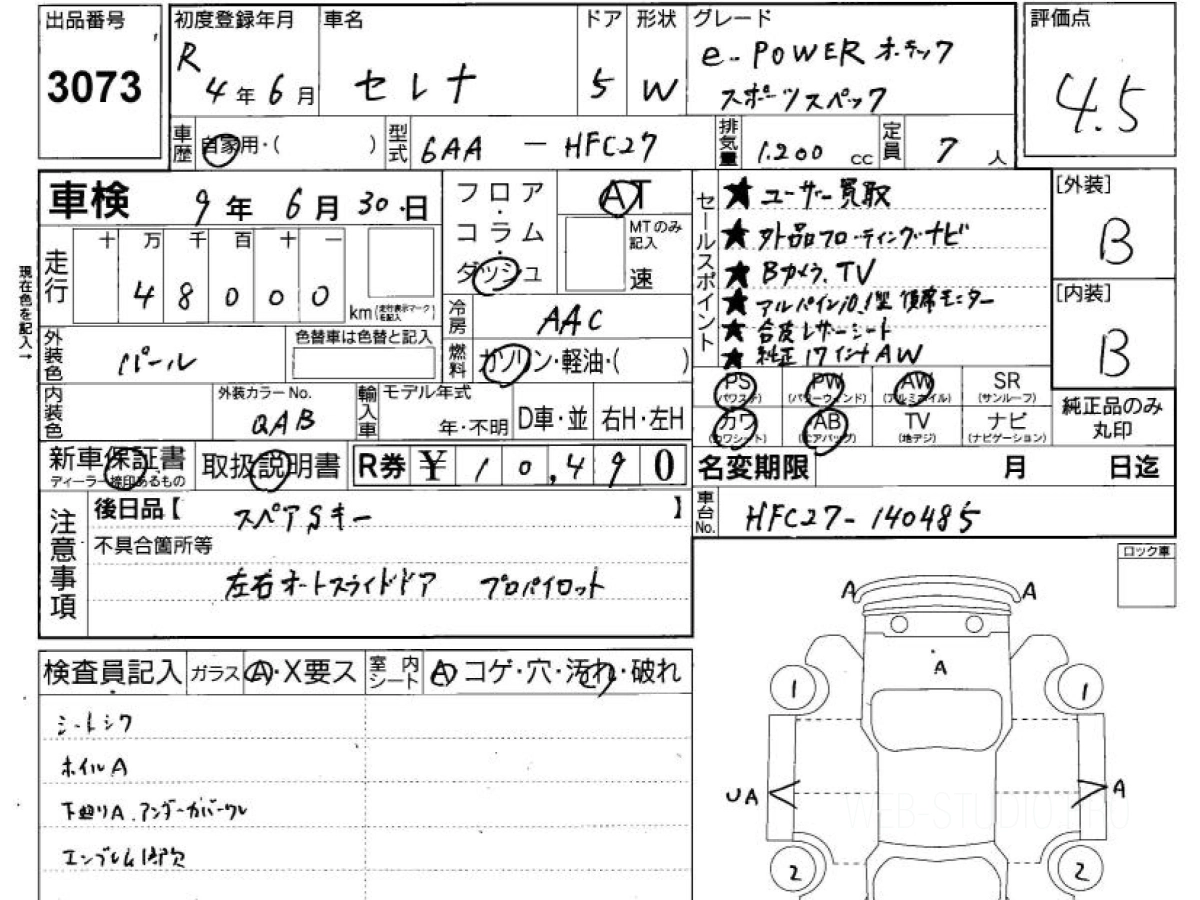 出品番号 初度登録年月 車名 ドア 形状 グレード 評価点
3073 R 4年6月 セレナ 5 W e-POWER オーテック
スポーツスペック
4.5
車歴 自家用・( ) 型式 6AA - HFC27 排気量 1.200 cc 定員 7 人
車検 9年 6月 30.日
フロア・コラム・ダッシュ AT
MTのみ記入 速
セールスポイント
★ ユーザー買取
★ 外品フローティングナビ
★ Bカメラ、TV
★ アルパイン10.1型 後席モニター
★ 合皮レザーシート
★ 純正17インチAW
[外装]
B
[内装]
B
現在色を記入→
走行 十 万 千 百 十 一
4 8 0 0 0 km (走行表示マークを記入)
冷房 AAC
外装色 パール 色替車は色替と記入
燃料 ガソリン・軽油・( )
PS (パワステ) PW (パワーウィンド) AW (アルミホイル) SR (サンルーフ)
カワ (カワシート) AB (エアバッグ) TV (地デジ) ナビ (ナビゲーション)
純正品のみ
丸印
内装色 外装カラーNo. QAB 輸入車 モデル年式 年・不明 D車・並 右H・左H
新車保証書 ディーラー捺印あるもの 取扱説明書 R券 ¥ 10,490
名変期限 月 日迄
注意事項
後日品【 スペアSキー 】
車台No. HFC27-140485
不具合箇所等
左右オートスライドドア プロパイロット
ロック車
検査員記入 ガラス A・X要ス 室内シート A コゲ・穴・汚れ・破れ
シートシワ
ホイルA
下廻りA、アンダーカバーワレ
エンブレム1部欠
A A
A
1 1
UA A
2 2
WEB-STUDIO.PRO